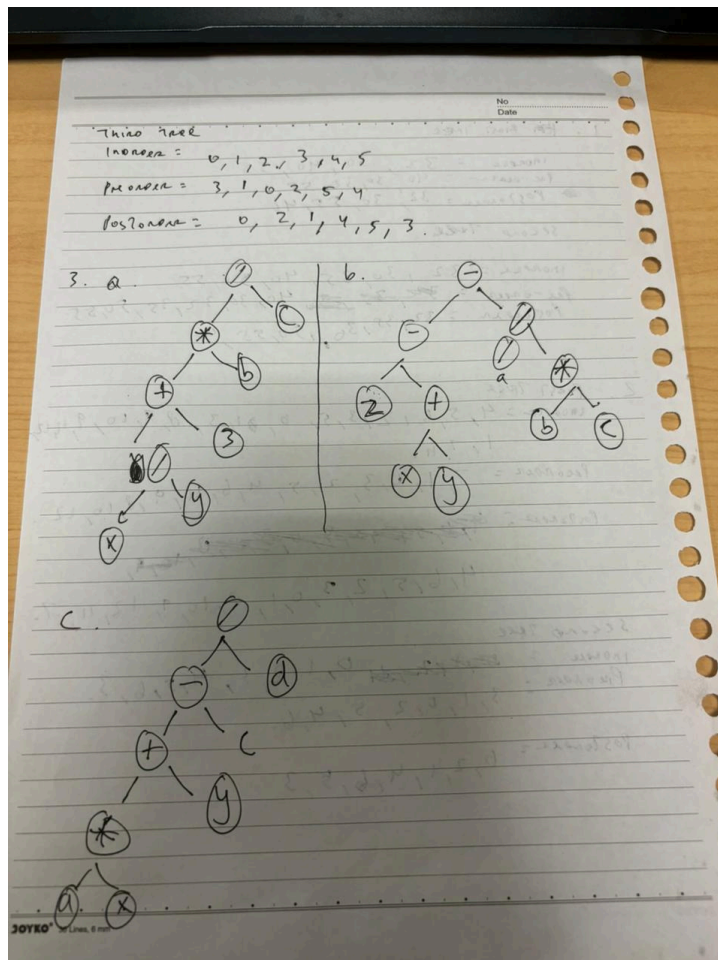 No
Date
Third Tree
Inorder = 0, 1, 2, 3, 4, 5
Preorder = 3, 1, 0, 2, 5, 4
Postorder = 0, 2, 1, 4, 5, 3.
3. a.
/
* c
+ b
/ 3
x y
b.
-
- /
2 + / *
a
x y b c
c.
/
- d
+ c
* y
a x
JOYKO Lines, 6 mm